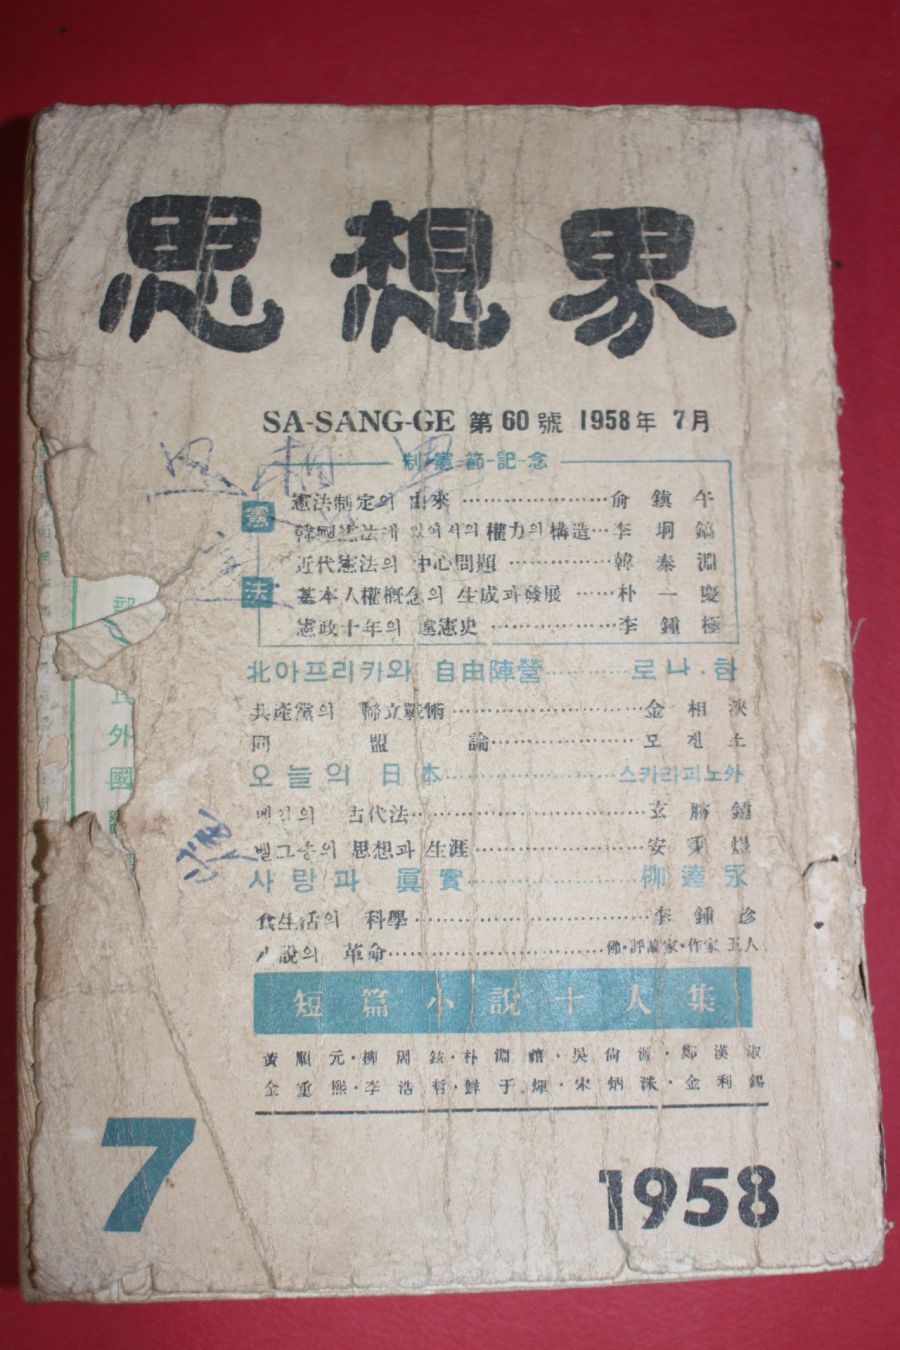 思想界
SA-SANG-GE 第60號 1958年 7月
制-憲-節-記-念
憲法
憲法制定의 由來…………………兪鎭午
韓國憲法에 있어서의 權力의 構造…李坰鎬
近代憲法의 中心問題……………韓泰淵
基本人權槪念의 生成과 發展……朴一慶
憲政十年의 違憲史………………李鍾極
北아프리카와 自由陣營…………로나·한
共產黨의 聯立戰術……………………金相浹
同盟論………………
오늘의 日本……………………스카라피노外
메인의 古代法…………………………玄勝鍾
벨그송의 思想과 生涯…………………安秉煜
사랑과 眞實……………………柳達永
食生活의 科學…………………………李鍾珍
小說의 革命………………………佛·評論家·作家 五人
短篇小說十人集
黃順元·柳周鉉·朴淵禧·吳尙源·鄭漢淑
金重熙·李浩哲·鮮于煇·宋炳洙·金利錫
7
1958
外國